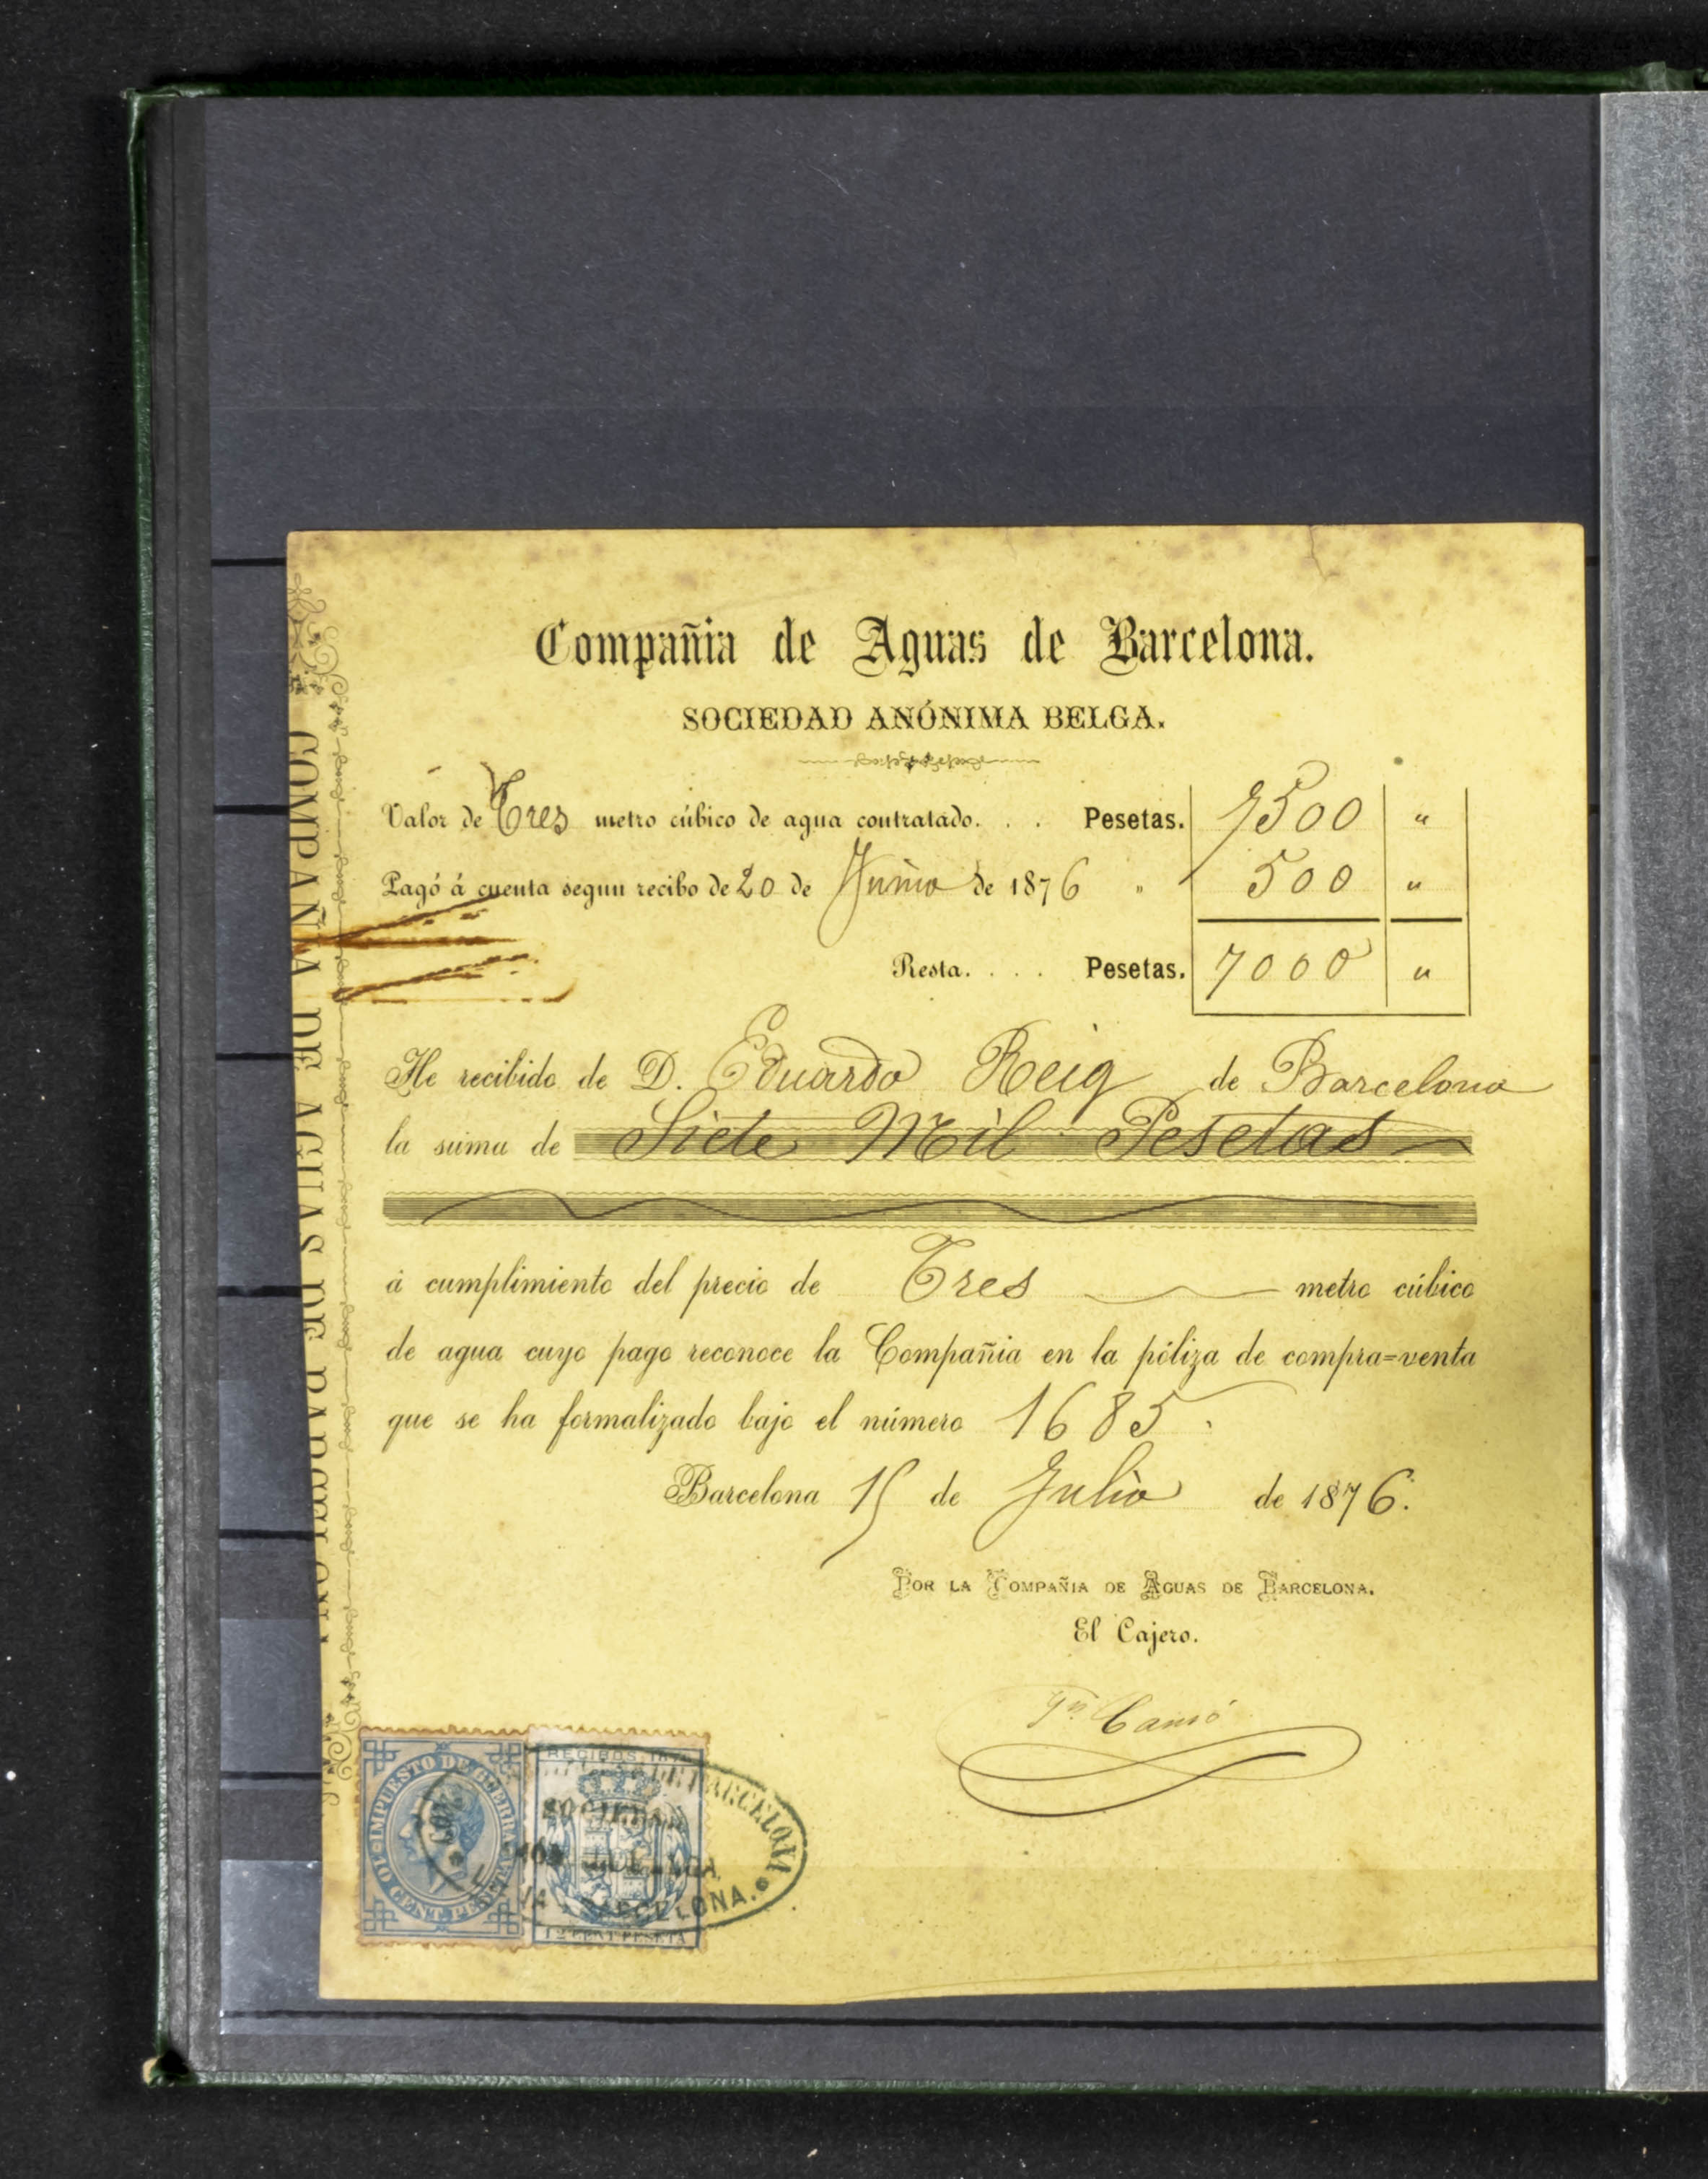 Compañia de Aguas de Barcelona.
SOCIEDAD ANÓNIMA BELGA.
Valor de Tres metro cúbico de agua contratado. . . Pesetas. 7500 "
Pagó á cuenta segun recibo de 20 de Junio de 1876 " 500 "
Resta. . . . Pesetas. 7000 "
He recibido de D. Eduardo Reig de Barcelona
la suma de Siete Mil Pesetas
á cumplimiento del precio de Tres metro cúbico
de agua cuyo pago reconoce la Compañia en la póliza de compra=venta
que se ha formalizado bajo el número 1685.
Barcelona 15 de Julio de 1876.
POR LA COMPAÑIA DE AGUAS DE BARCELONA.
El Cajero.
COMPAÑIA DE AGUAS DE BARCELONA
IMPUESTO DE GUERRA
10 CENT. PESETA
RECIBOS
12 CENT PESETA
DE BARCELONA
SOCIEDAD
BARCELONA.